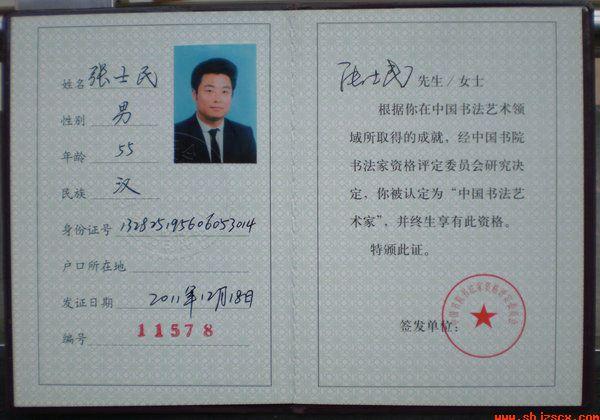 姓名 张士民
性别 男
年龄 55
民族 汉
身份证号 132825195606053014
户口所在地
发证日期 2011年12月18日
编号 11578
张士民 先生/女士
根据你在中国书法艺术领
域所取得的成就，经中国书院
书法家资格评定委员会研究决
定，你被认定为“中国书法艺
术家”，并终生享有此资格。
特颁此证。
签发单位：
中国书院书法家资格评定委员会
www.sbjzscx.com